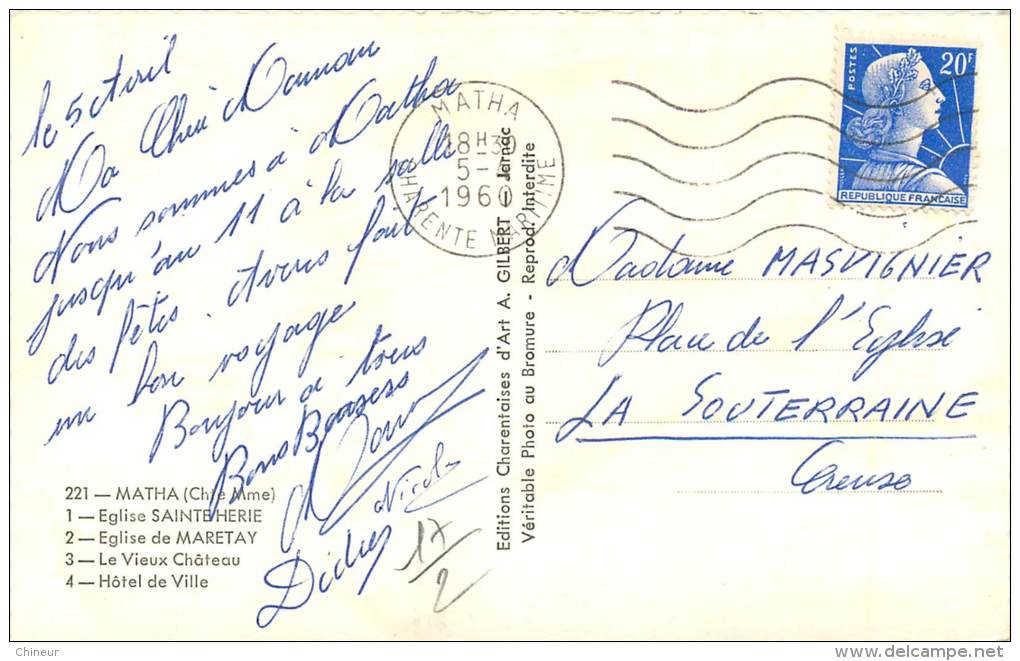 le 5 Avril
Ma Chère Maman
Nous sommes à Matha
jusqu'au 11 à la salle
des fêtes. Avons fait
un bon voyage
Bonjour à tous
Bons Baisers
Nicole
Didier
17/2
221 — MATHA (Chte Mme)
1 — Eglise SAINTE HERIE
2 — Eglise de MARETAY
3 — Le Vieux Château
4 — Hôtel de Ville
Editions Charentaises d'Art A. GILBERT - Jarnac
Véritable Photo au Bromure - Reprod. Interdite
MATHA
18H30
5-4
1960
CHARENTE MARITIME
POSTES
20F
REPUBLIQUE FRANCAISE
Madame MASVIGNIER
Place de l'Eglise
LA SOUTERRAINE
Creuse
Chineur
delcampe.net